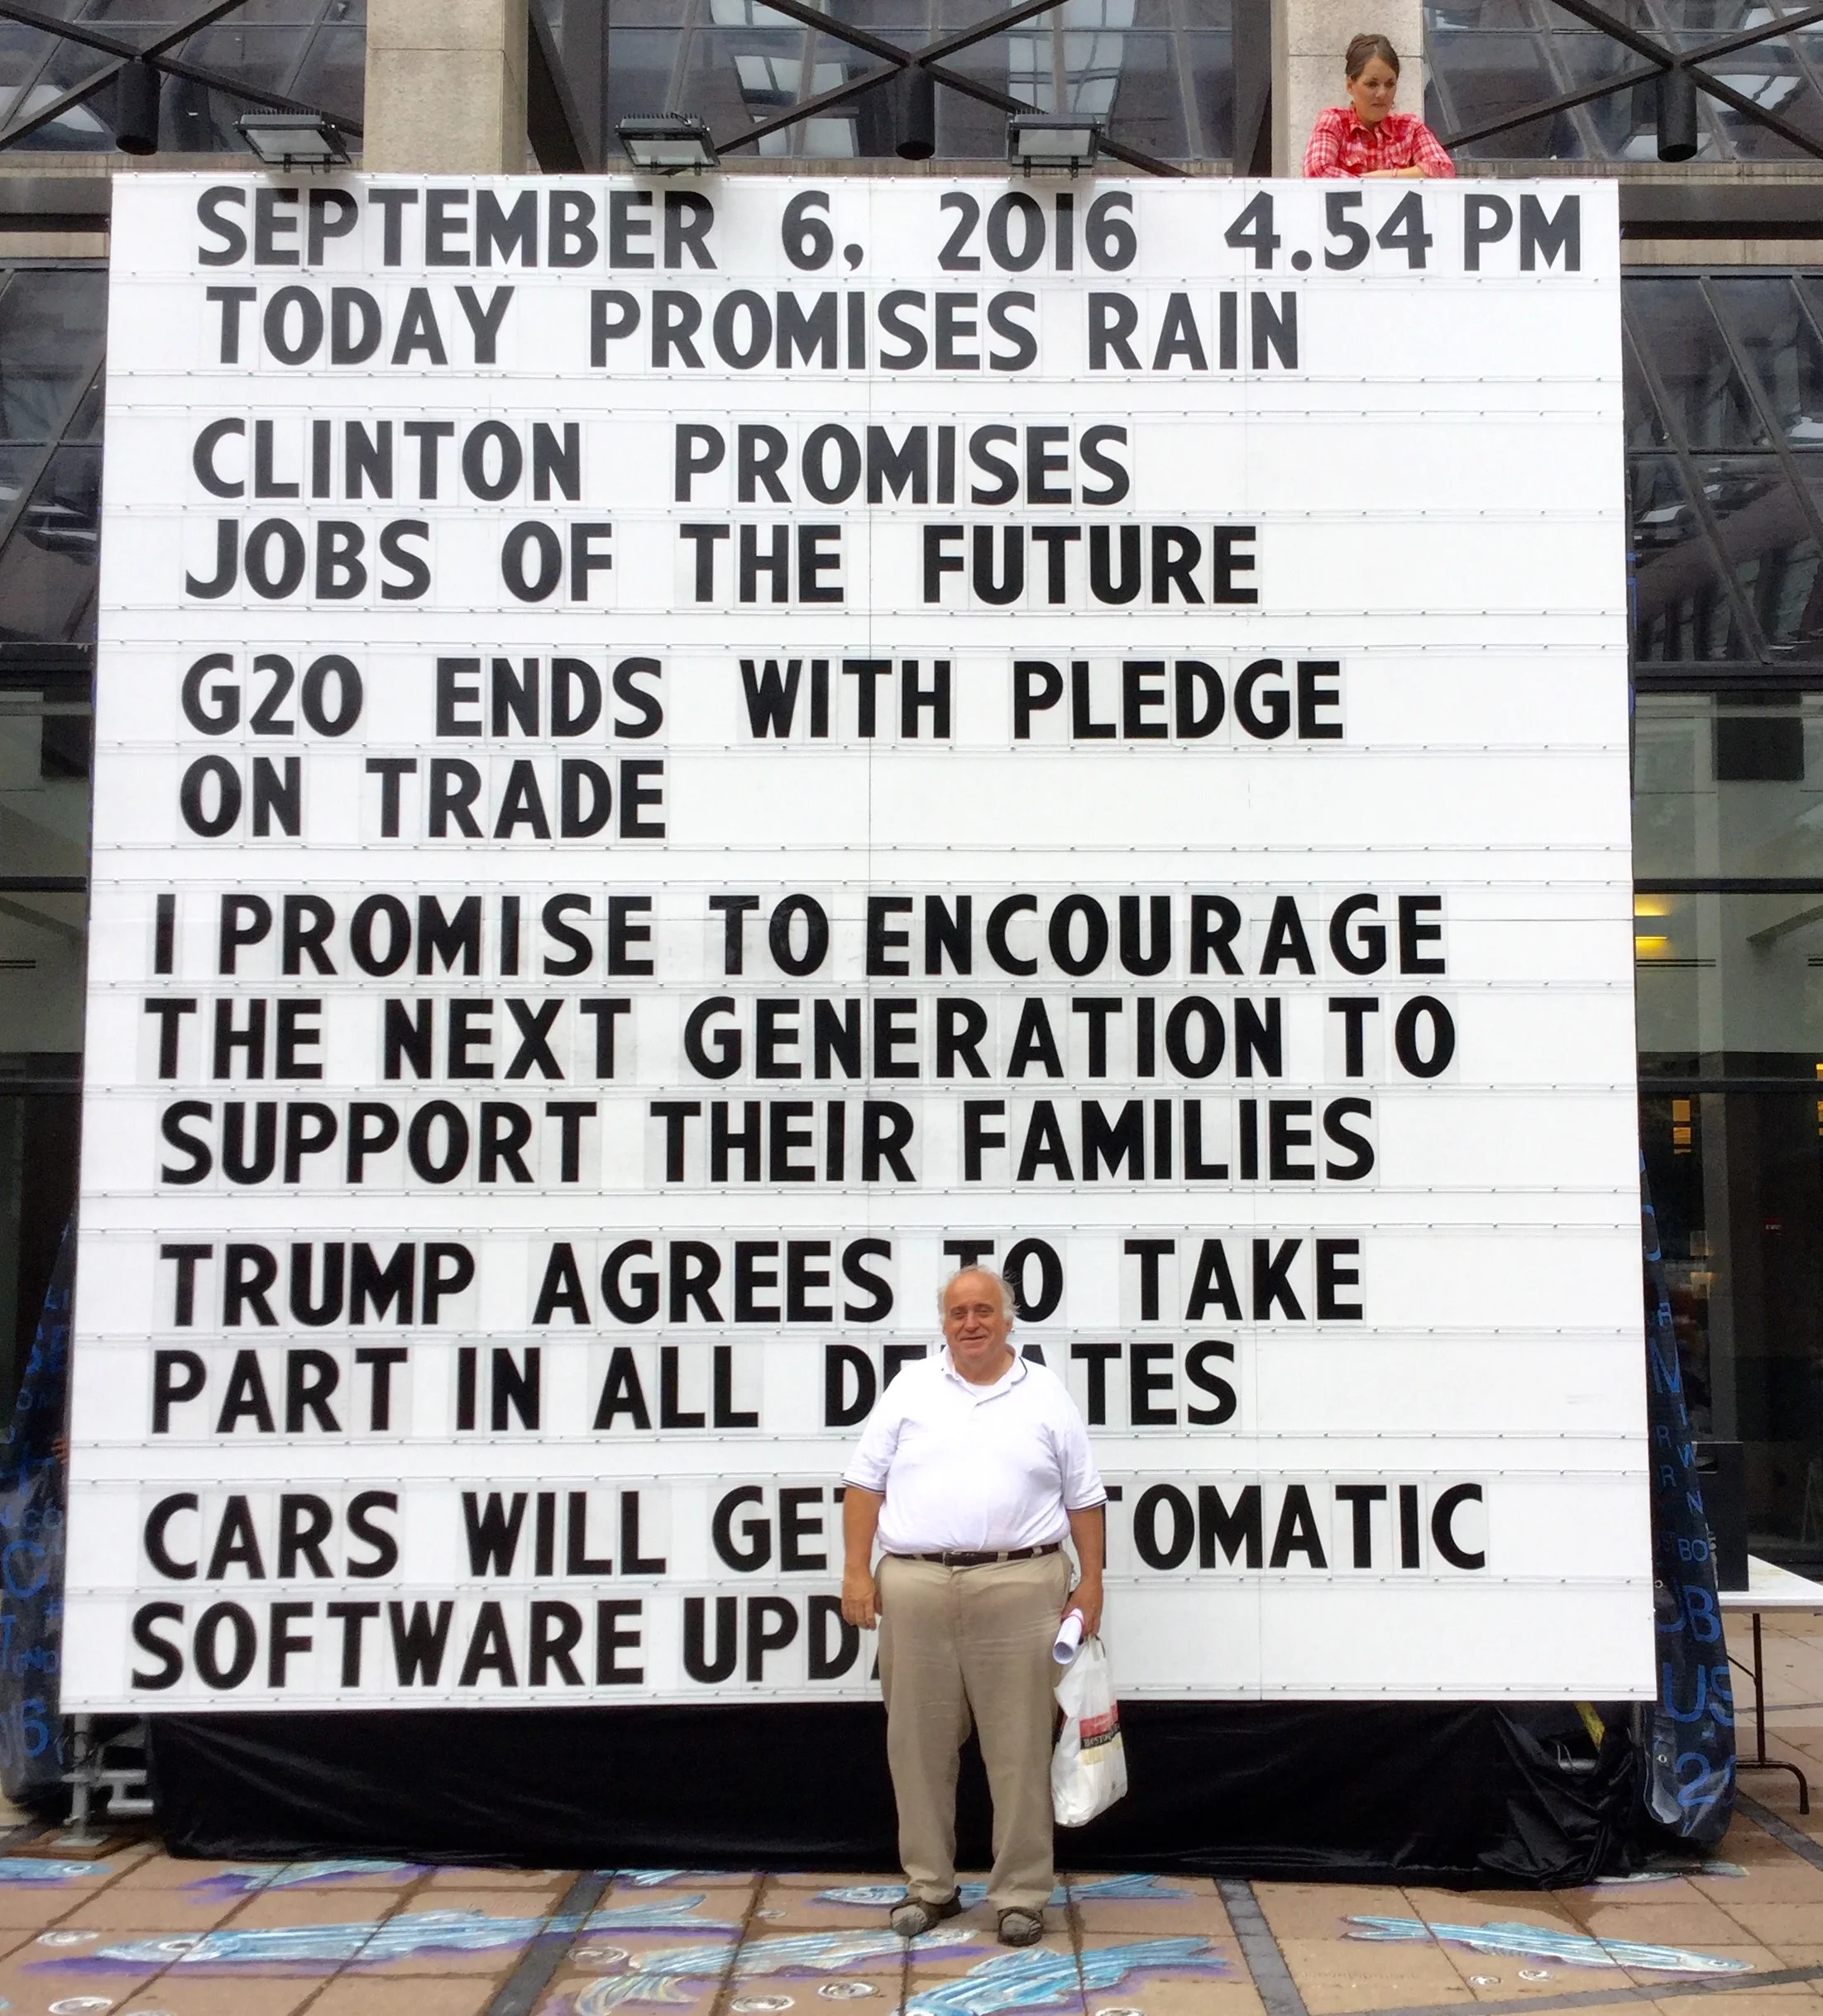 SEPTEMBER 6, 2016 4.54 PM
TODAY PROMISES RAIN
CLINTON PROMISES
JOBS OF THE FUTURE
G20 ENDS WITH PLEDGE
ON TRADE
I PROMISE TO ENCOURAGE
THE NEXT GENERATION TO
SUPPORT THEIR FAMILIES
TRUMP AGREES TO TAKE
PART IN ALL DE TES
CARS WILL GET TOMATIC
SOFTWARE UPD